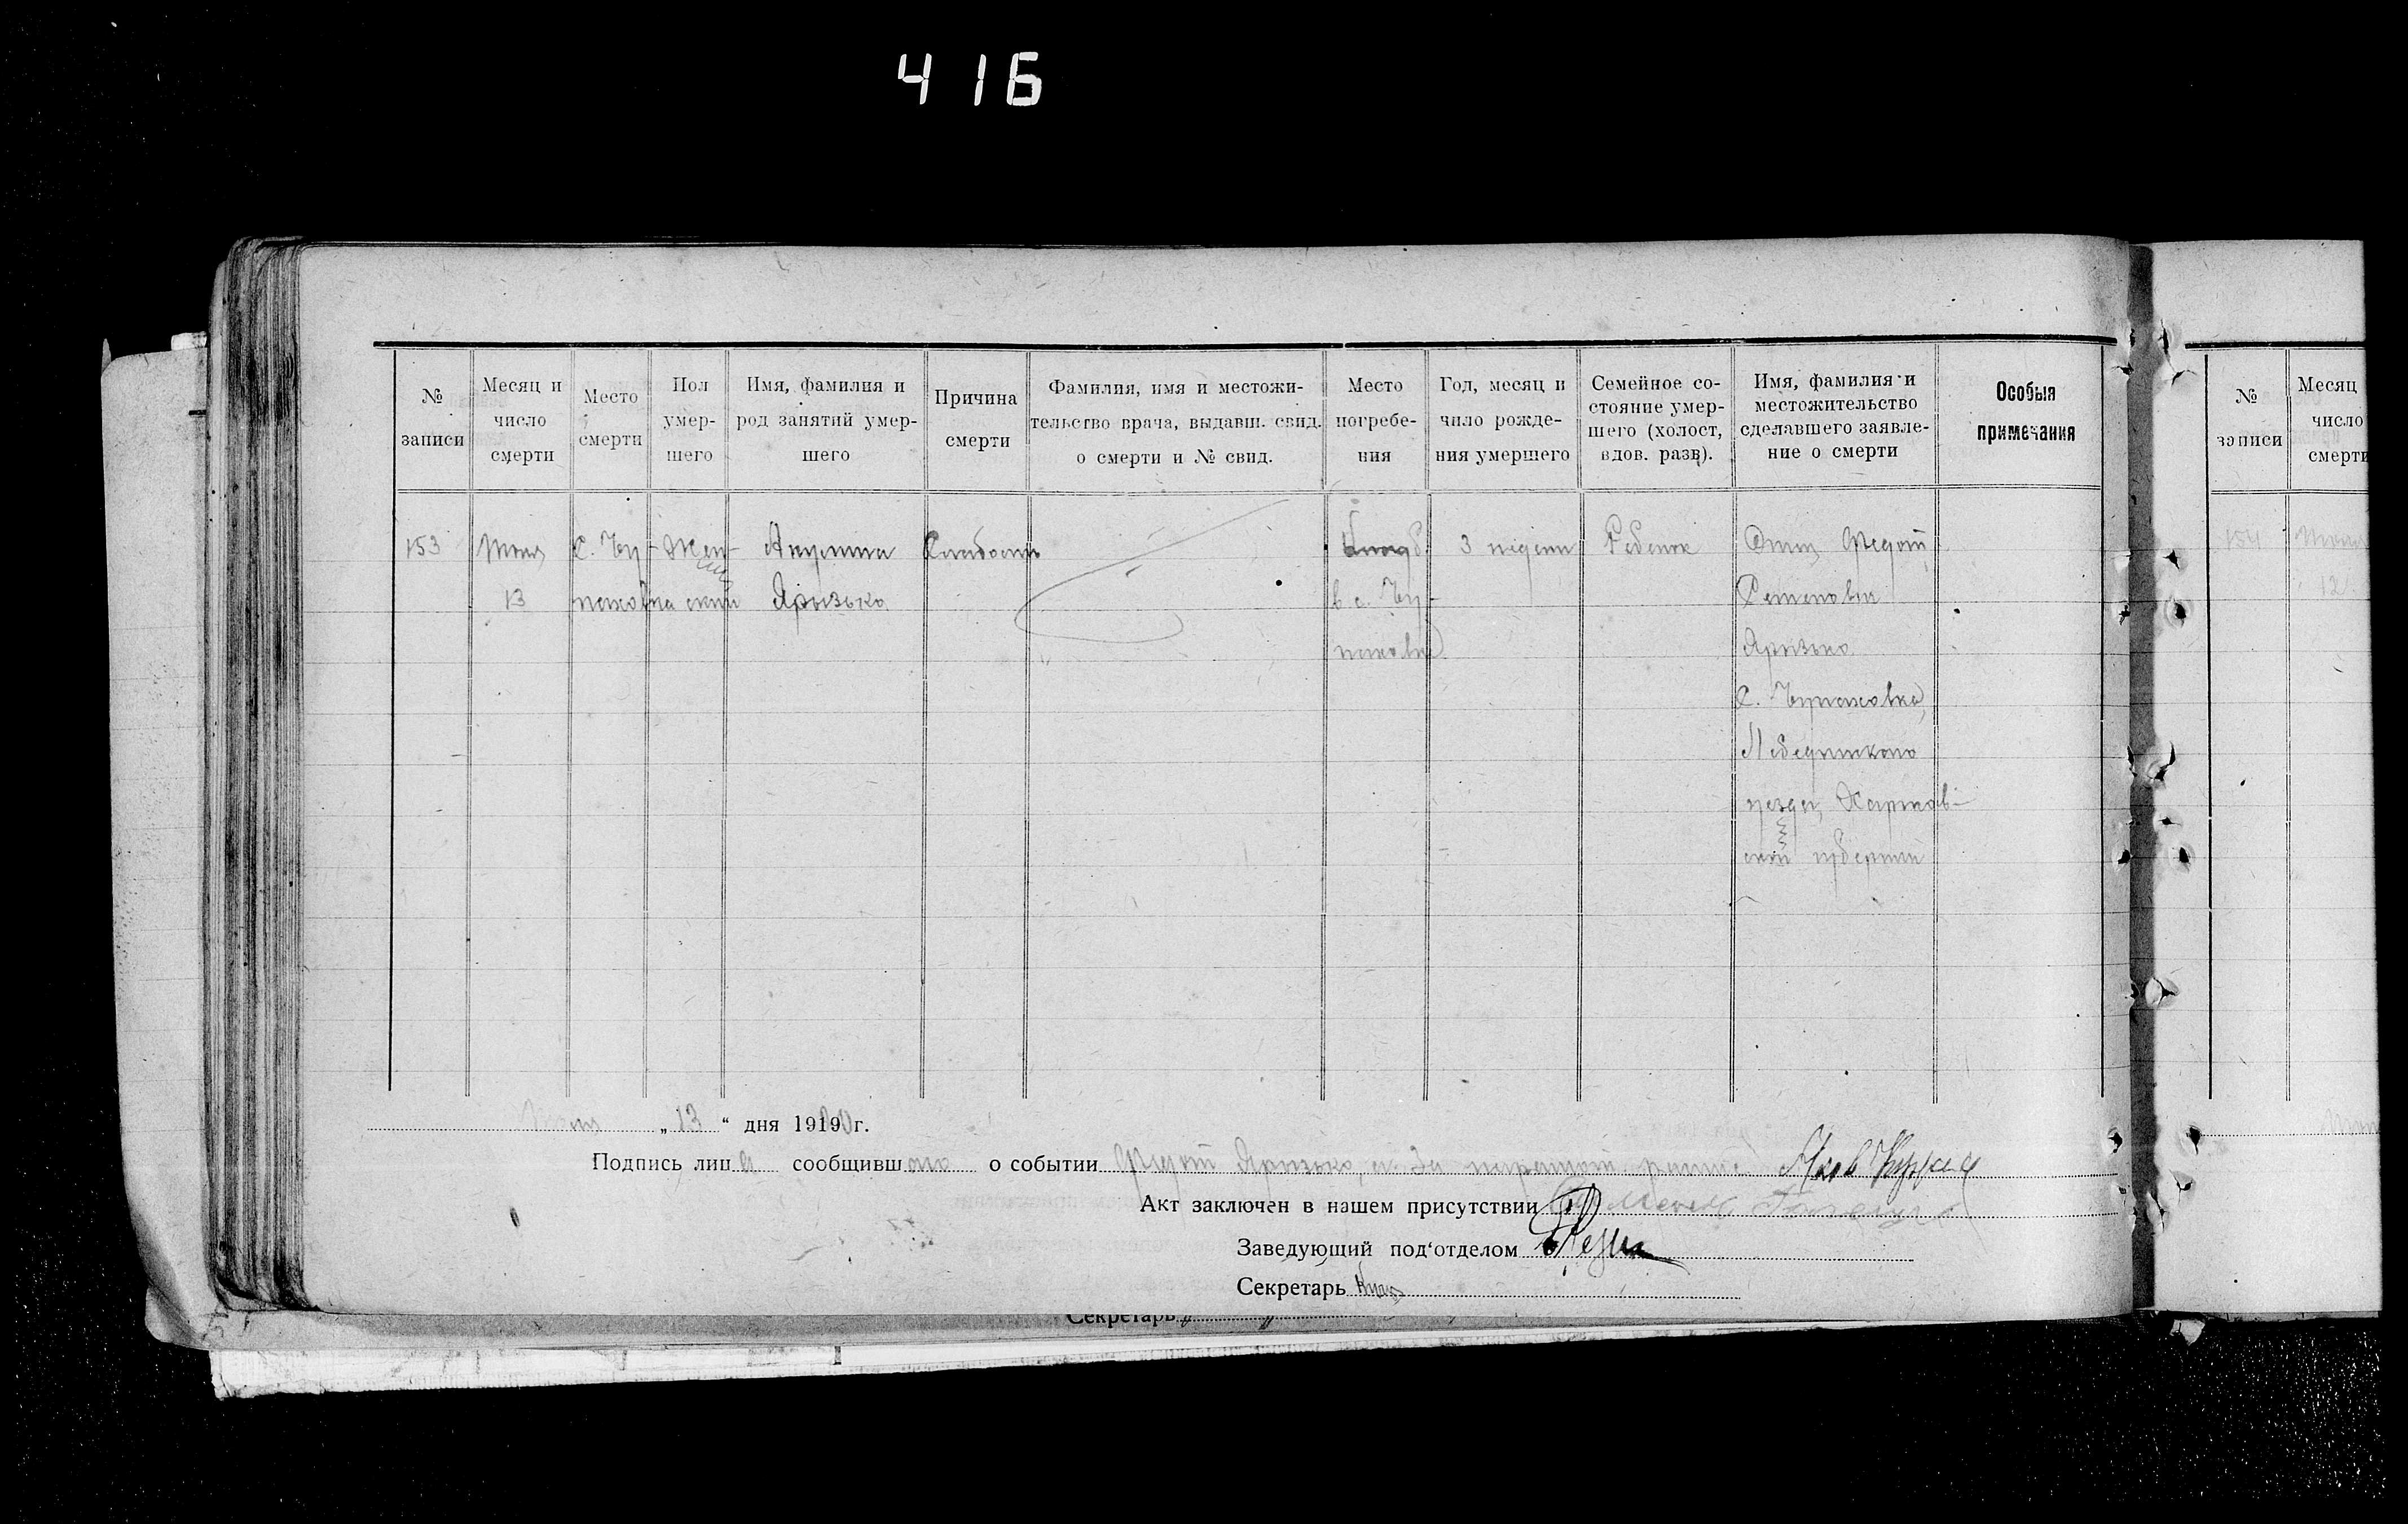 416
№
записи
Месяц и
число
смерти
Место
смерти
Пол
умер-
шего
Имя, фамилия и
род занятий умер-
шего
Причина
смерти
Фамилия, имя и местожи-
тельство врача, выдавш. свид.
о смерти и № свид.
Место
погребе-
ния
Год, месяц и
чило рожде-
ния умершего
Семейное со-
стояние умер-
шего (холост,
вдов. разв).
Имя, фамилия и
местожительство
сделавшего заявле-
ние о смерти
Особыя
примечания
№
записи
Месяц
число
смерти
153
13
С. Чу-
паховка
Жен-
ский
Акулина
Ярызько
Слабость
Кладб.
в с. Чу-
паховке
3 недели
Ребенок
Отец Федот
Ярызько
С. Чупаховка,
Лебединского
уезда, Харьков-
ской губернии
154
12
„ 13 “ дня 1919 г.
Подпись лица сообщившего о событии Федот Ярызько, а за неграмот. распис. Яков
Акт заключен в нашем присутствии
Заведующий под'отделом
Секретарь
Секретарь